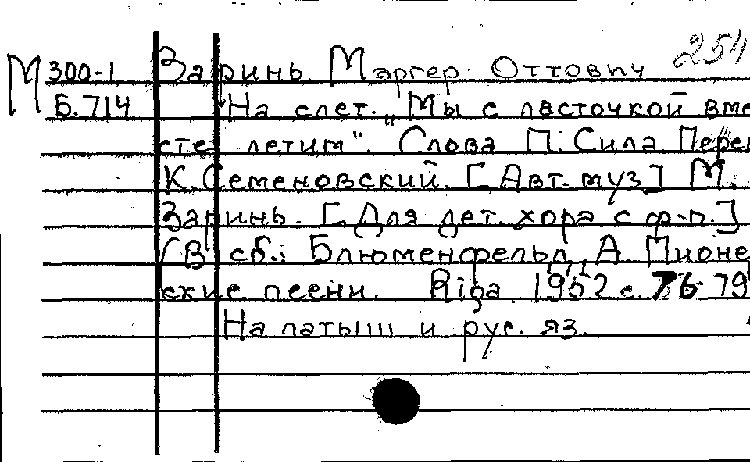 254
М 300-1 Заринь Маргер Оттович
Б.714 На слет. „Мы с ласточкой вме
сте летим". Слова П. Сила. Перев
К. Семеновский. [Авт. муз] М.
Заринь. [Для дет. хора с ф-п.]
(В сб.: Блюменфельд, А. Пионе
ские песни. Rīga 1952 с. 76-79
На латыш и рус. яз.